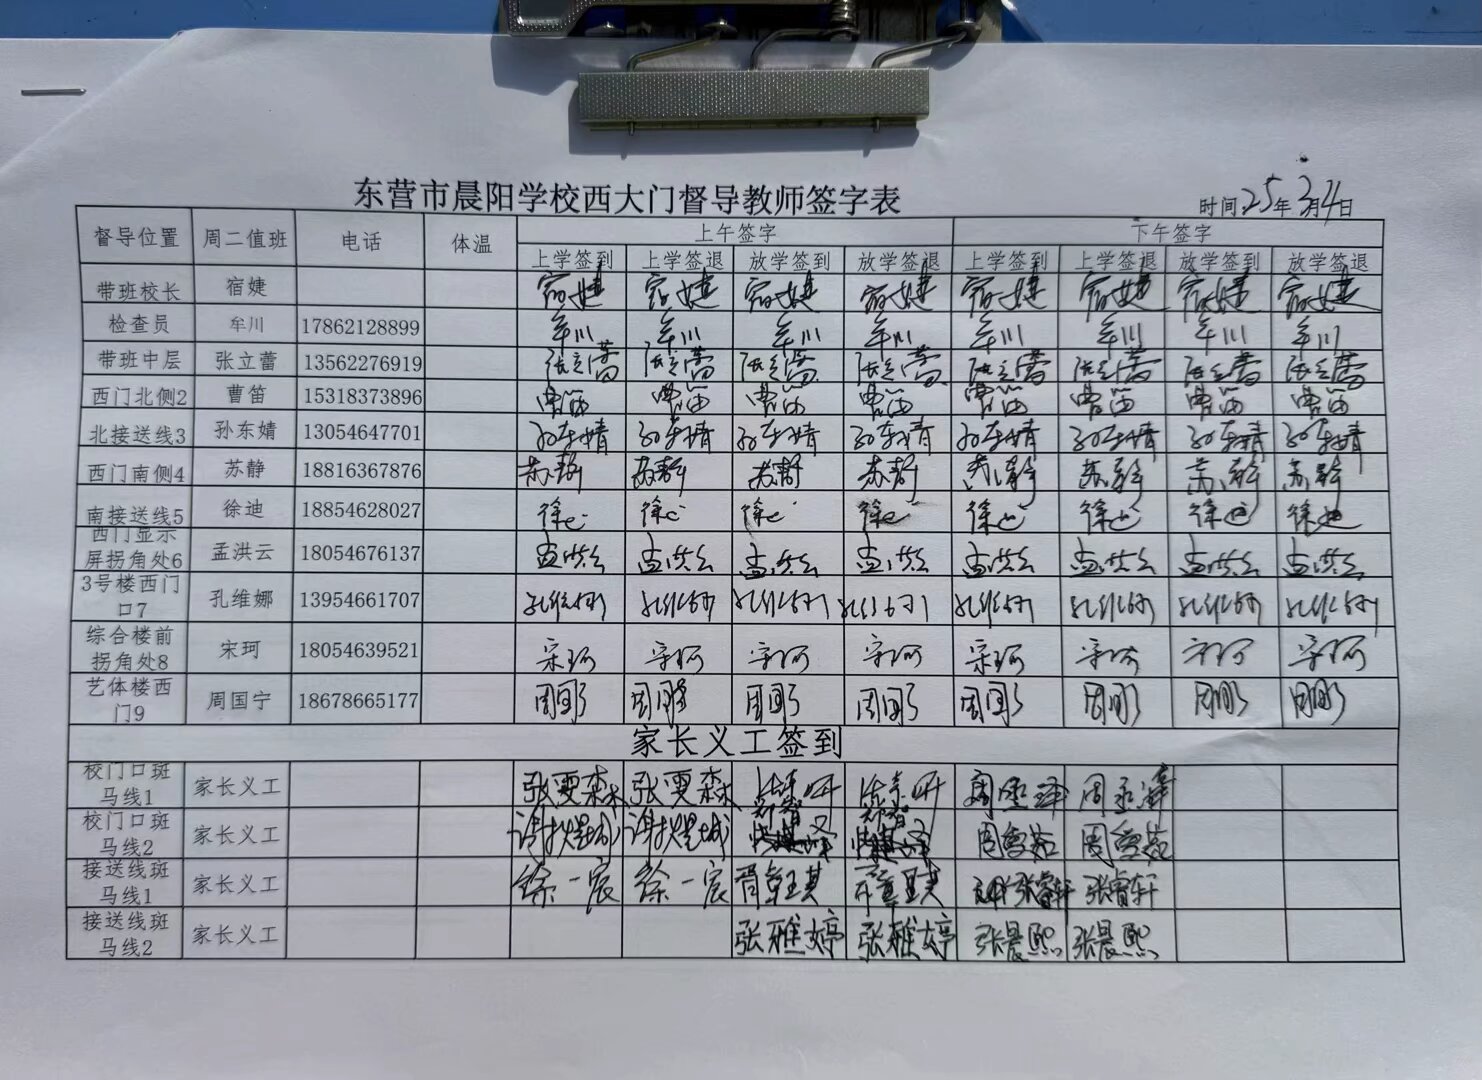 东营市晨阳学校西大门督导教师签字表
时间:25年3月4日
督导位置 周二值班 电话 体温 上午签字 下午签字
上学签到 上学签退 放学签到 放学签退 上学签到 上学签退 放学签到 放学签退
带班校长 宿婕 宿婕 宿婕 宿婕 宿婕 宿婕 宿婕 宿婕 宿婕
检查员 牟川 17862128899 牟川 牟川 牟川 牟川 牟川 牟川 牟川 牟川
带班中层 张立蕾 13562276919 张立蕾 张立蕾 张立蕾 张立蕾 张立蕾 张立蕾 张立蕾 张立蕾
西门北侧2 曹笛 15318373896 曹笛 曹笛 曹笛 曹笛 曹笛 曹笛 曹笛 曹笛
北接送线3 孙东婧 13054647701 孙东婧 孙东婧 孙东婧 孙东婧 孙东婧 孙东婧 孙东婧 孙东婧
西门南侧4 苏静 18816367876 苏静 苏静 苏静 苏静 苏静 苏静 苏静 苏静
南接送线5 徐迪 18854628027 徐迪 徐迪 徐迪 徐迪 徐迪 徐迪 徐迪 徐迪
西门显示
屏拐角处6 孟洪云 18054676137 孟洪云 孟洪云 孟洪云 孟洪云 孟洪云 孟洪云 孟洪云 孟洪云
3号楼西门
口7 孔维娜 13954661707 孔维娜 孔维娜 孔维娜 孔维娜 孔维娜 孔维娜 孔维娜 孔维娜
综合楼前
拐角处8 宋珂 18054639521 宋珂 宋珂 宋珂 宋珂 宋珂 宋珂 宋珂 宋珂
艺体楼西
门9 周国宁 18678665177
家长义工签到
校门口斑
马线1 家长义工 张雯森 张雯森
校门口斑
马线2 家长义工
接送线斑
马线1 家长义工 徐一宸 徐一宸 张睿轩 张睿轩
接送线斑
马线2 家长义工 张雅婷 张雅婷 张晨熙 张晨熙